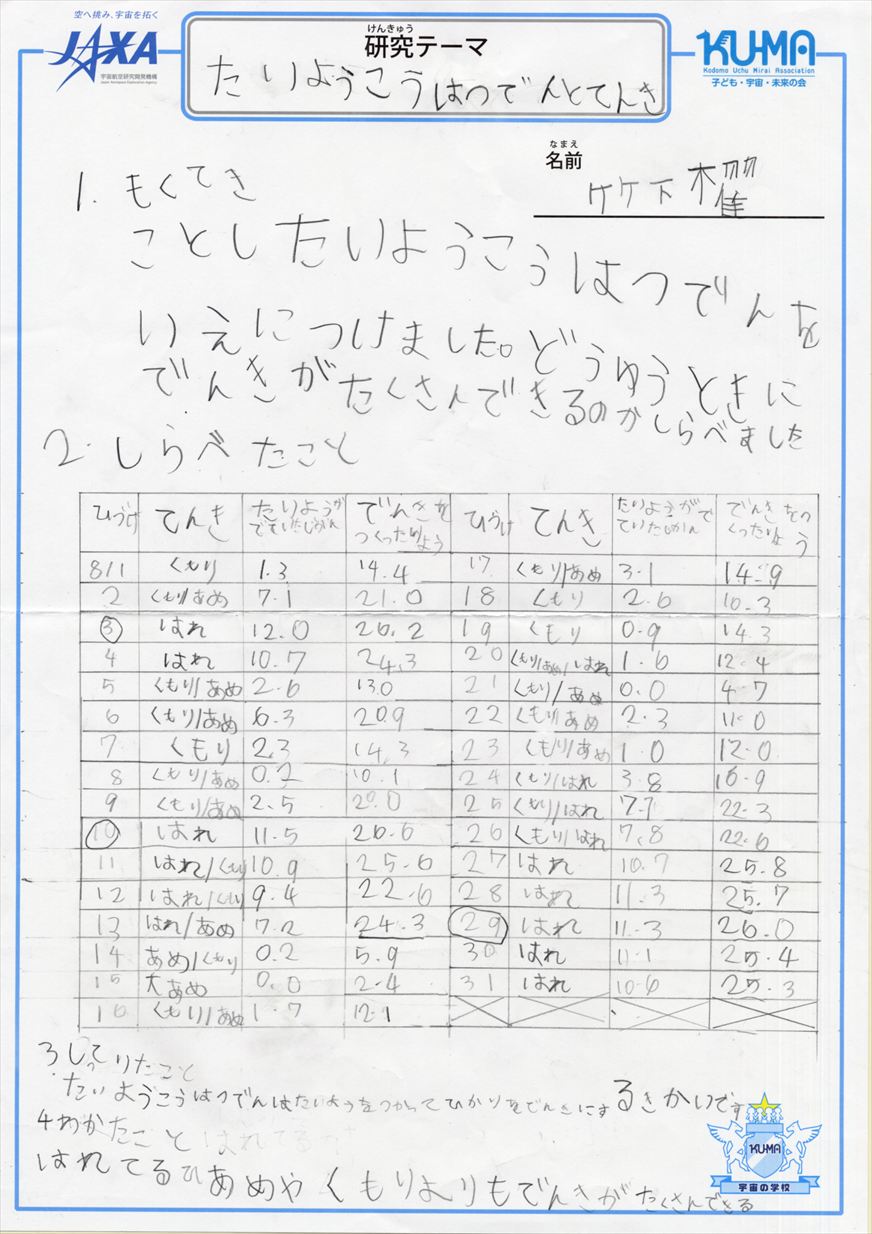 空へ挑み、宇宙を拓く
JAXA
宇宙航空研究開発機構
Japan Aerospace Exploration Agency
けんきゅう
研究テーマ
たいようこうはつでんとてんき
KU-MA
Kodomo Uchu Mirai Association
子ども・宇宙・未来の会
なまえ
名前
竹下 櫂
1. もくてき
ことしたいようこうはつでんを
いえにつけました。どうゆうときに
でんきがたくさんできるのかしらべました
2. しらべたこと
ひづけ てんき たいようがでていたじかん でんきをつくったりょう ひづけ てんき たいようがでていたじかん でんきをつくったりょう
8/1 くもり 1.3 14.4 17 くもり/あめ 3.1 14.9
2 くもり/あめ 7.1 21.0 18 くもり 2.6 16.3
3 はれ 12.0 26.2 19 くもり 0.9 14.3
4 はれ 10.7 24.3 20 くもり/あめ/はれ 1.6 12.4
5 くもり/あめ 2.6 13.0 21 くもり/あめ 0.0 4.7
6 くもり/あめ 6.3 20.9 22 くもり/あめ 2.3 11.0
7 くもり 2.3 14.3 23 くもり/あめ 1.0 12.0
8 くもり/あめ 0.2 10.1 24 くもり/はれ 3.8 16.9
9 くもり/あめ 2.5 20.0 25 くもり/はれ 7.7 22.3
10 はれ 11.5 26.6 26 くもり/はれ 7.8 22.6
11 はれ/くもり 10.9 25.6 27 はれ 10.7 25.8
12 はれ/くもり 9.4 22.6 28 はれ 11.3 25.7
13 はれ/あめ 7.2 24.3 29 はれ 11.3 26.0
14 あめ/くもり 0.2 5.9 30 はれ 11.1 25.4
15 大あめ 0.0 2.4 31 はれ 10.6 25.3
16 くもり/あめ 1.7 12.1
3 しっていたこと
たいようこうはつでんはたいようをつかってひかりをでんきにするきかいです
4 わかたこと
はれてるひあめやくもりよりもでんきがたくさんできる
KU-MA
宇宙の学校